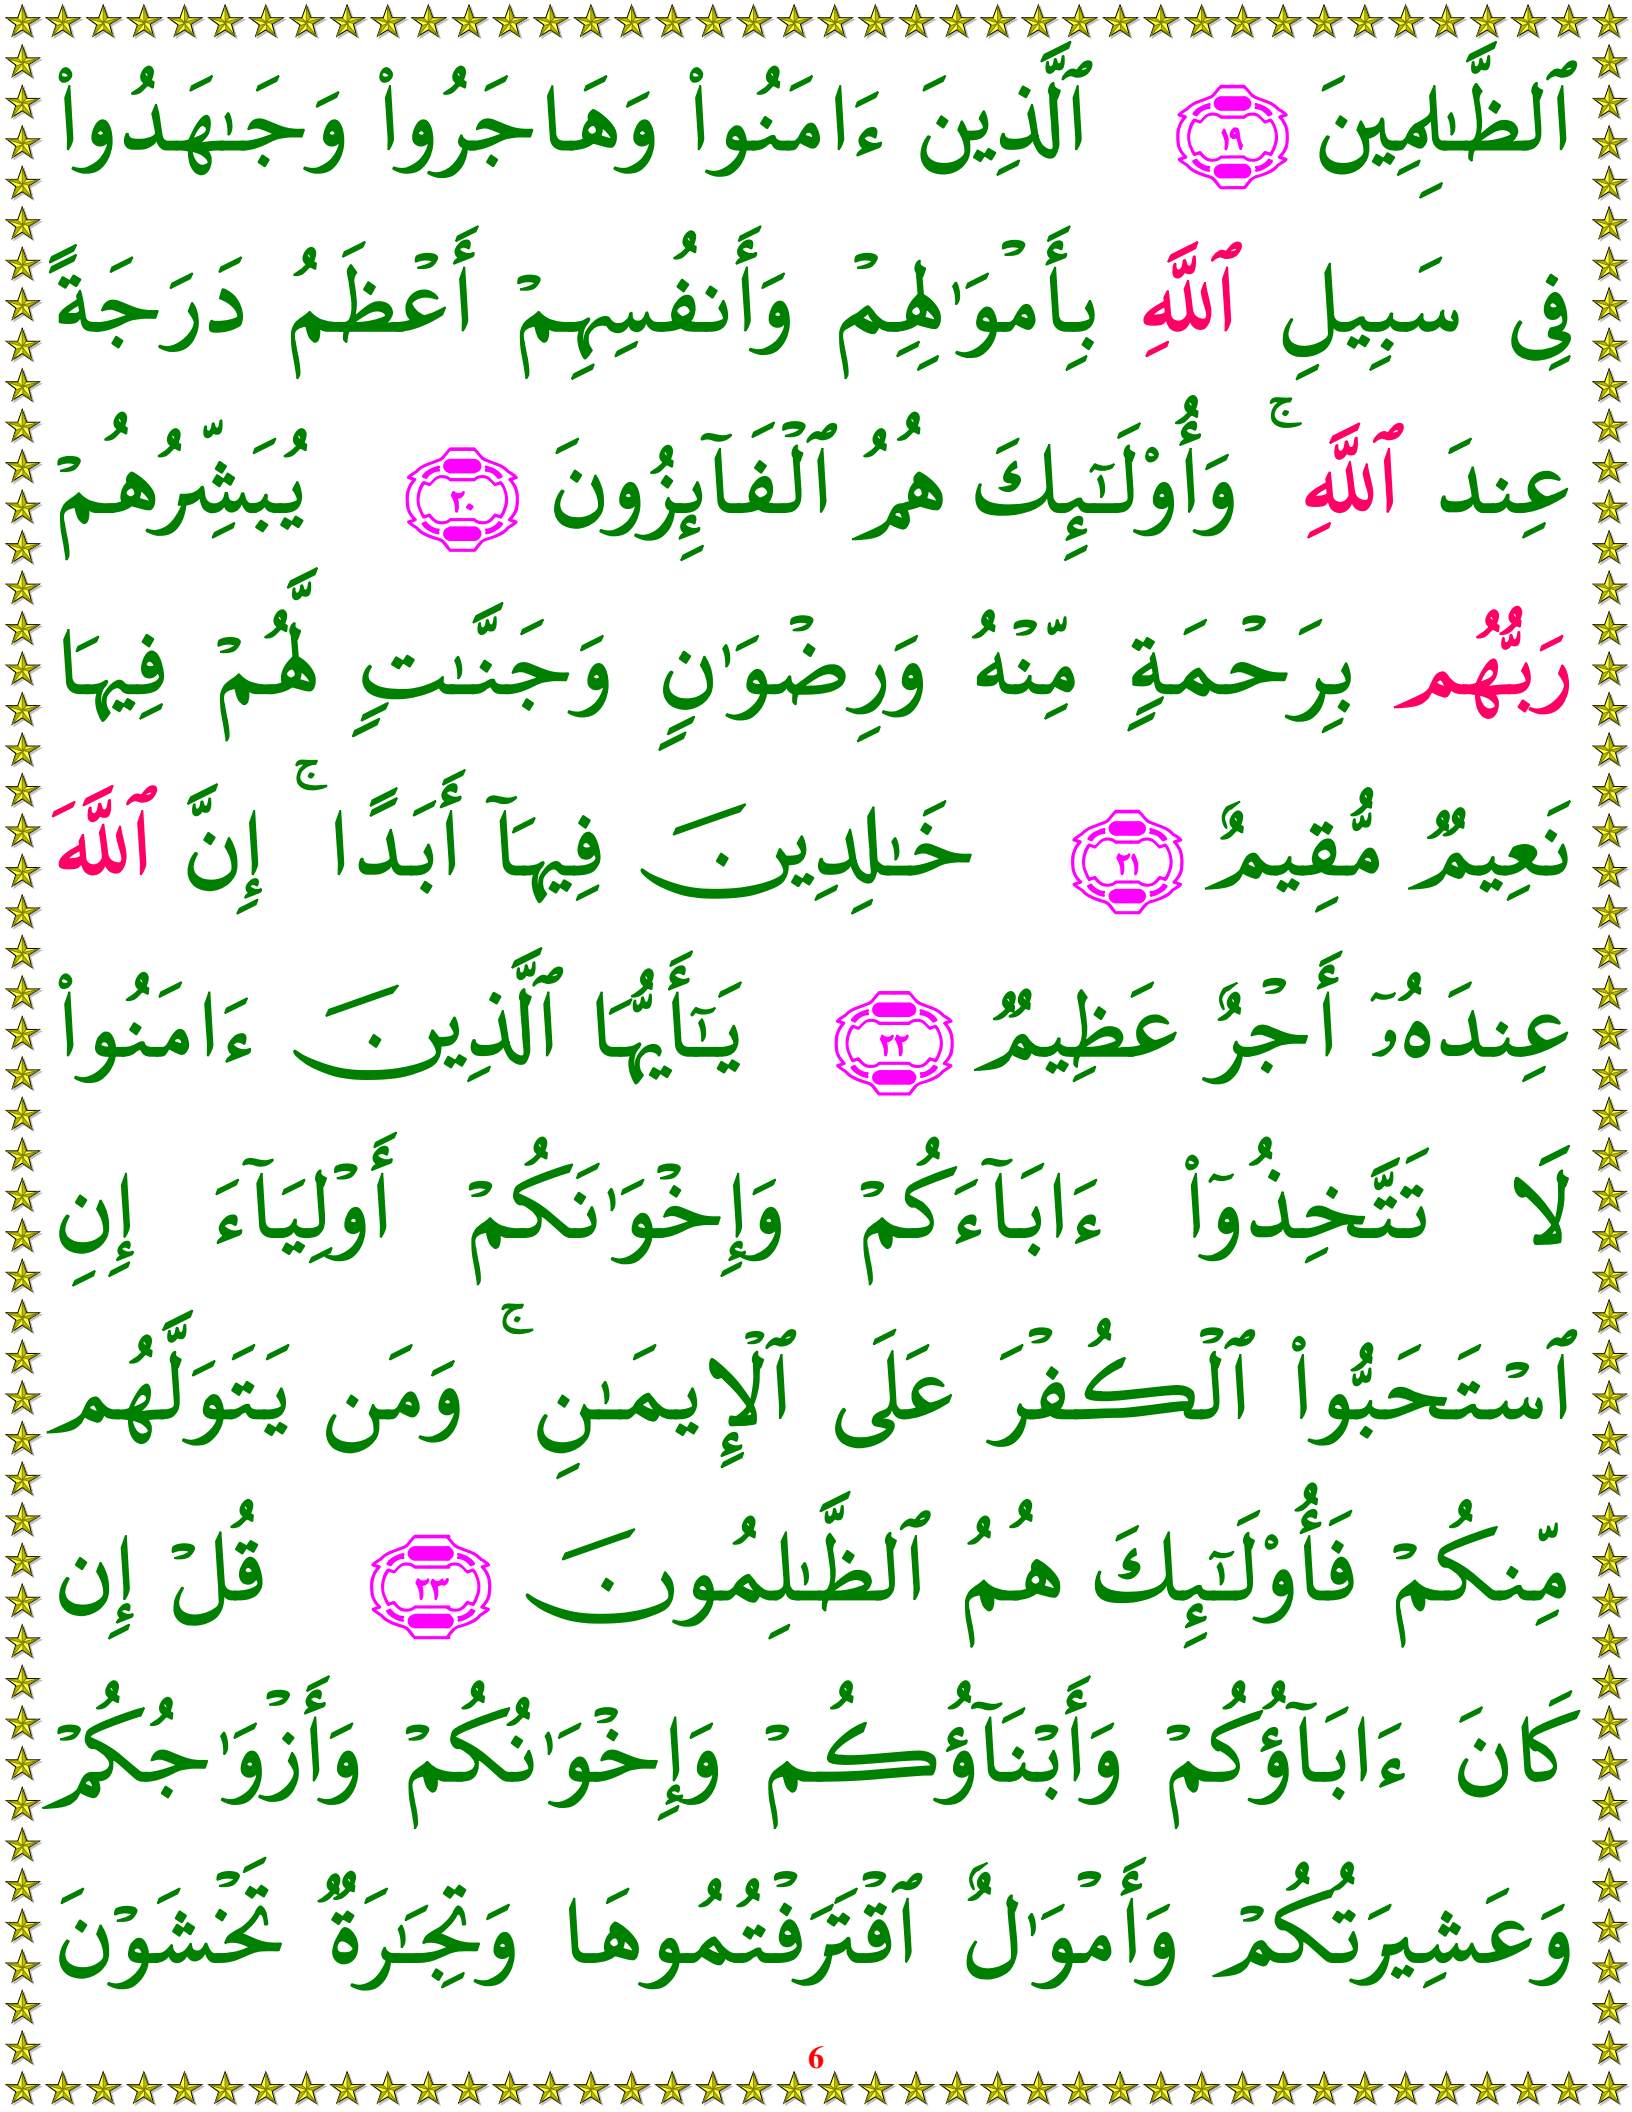 ٱلظَّـٰلِمِينَ ١٩ ٱلَّذِينَ ءَامَنُوا۟ وَهَاجَرُوا۟ وَجَـٰهَدُوا۟
فِى سَبِيلِ ٱللَّهِ بِأَمْوَٰلِهِمْ وَأَنفُسِهِمْ أَعْظَمُ دَرَجَةً
عِندَ ٱللَّهِ ۚ وَأُو۟لَـٰٓئِكَ هُمُ ٱلْفَآئِزُونَ ٢٠ يُبَشِّرُهُمْ
رَبُّهُم بِرَحْمَةٍ مِّنْهُ وَرِضْوَٰنٍ وَجَنَّـٰتٍ لَّهُمْ فِيهَا
نَعِيمٌ مُّقِيمٌ ٢١ خَـٰلِدِينَ فِيهَآ أَبَدًا ۚ إِنَّ ٱللَّهَ
عِندَهُۥٓ أَجْرٌ عَظِيمٌ ٢٢ يَـٰٓأَيُّهَا ٱلَّذِينَ ءَامَنُوا۟
لَا تَتَّخِذُوٓا۟ ءَابَآءَكُمْ وَإِخْوَٰنَكُمْ أَوْلِيَآءَ إِنِ
ٱسْتَحَبُّوا۟ ٱلْكُفْرَ عَلَى ٱلْإِيمَـٰنِ ۚ وَمَن يَتَوَلَّهُم
مِّنكُمْ فَأُو۟لَـٰٓئِكَ هُمُ ٱلظَّـٰلِمُونَ ٢٣ قُلْ إِن
كَانَ ءَابَآؤُكُمْ وَأَبْنَآؤُكُمْ وَإِخْوَٰنُكُمْ وَأَزْوَٰجُكُمْ
وَعَشِيرَتُكُمْ وَأَمْوَٰلٌ ٱقْتَرَفْتُمُوهَا وَتِجَـٰرَةٌ تَخْشَوْنَ
6